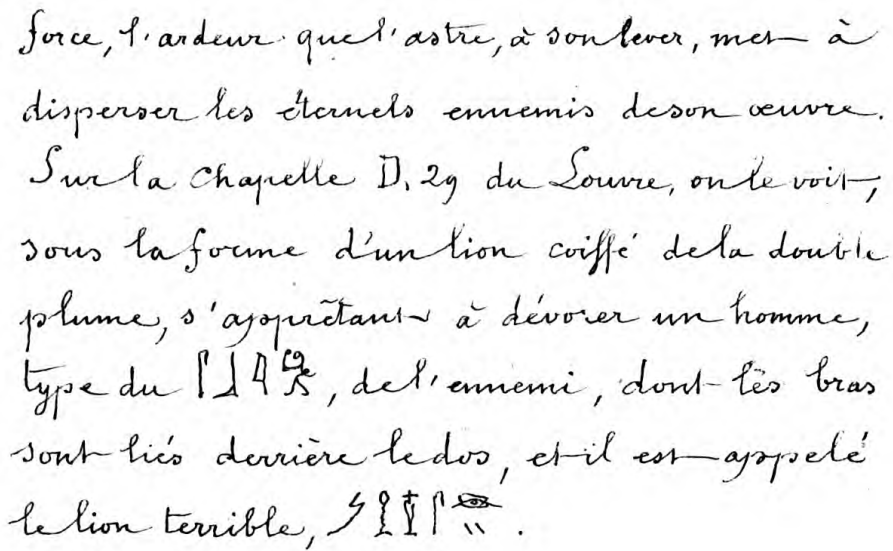 force, l'ardeur que l'astre, à son lever, met à
disperser les éternels ennemis de son œuvre.
Sur la chapelle D. 29 du Louvre, on le voit,
sous la forme d'un lion coiffé de la double
plume, s'apprêtant à dévorer un homme,
type du 𓋴𓃀𓇋, de l'ennemi, dont les bras
sont liés derrière le dos, et il est appelé
le lion terrible, .